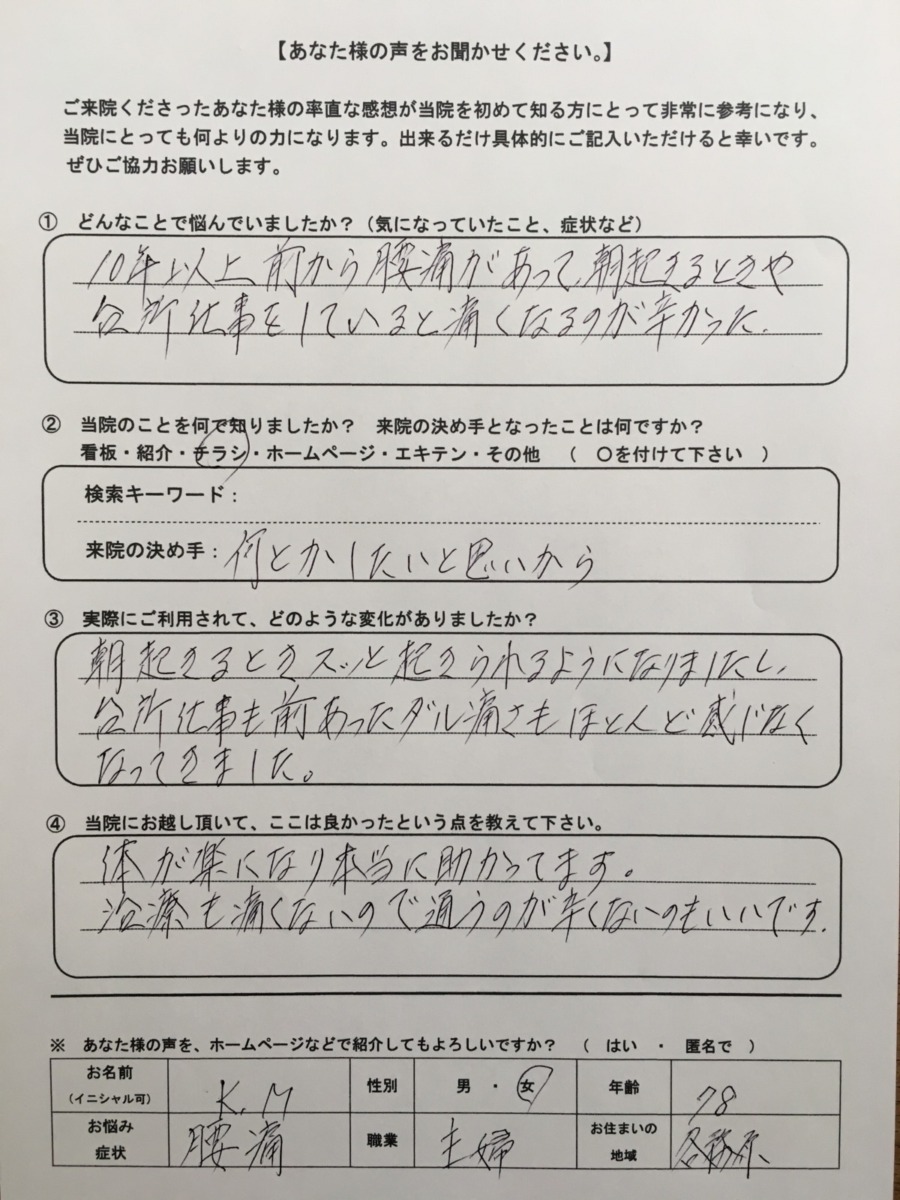 【あなた様の声をお聞かせください。】
ご来院くださったあなた様の率直な感想が当院を初めて知る方にとって非常に参考になり、
当院にとっても何よりの力になります。出来るだけ具体的にご記入いただけると幸いです。
ぜひご協力お願いします。
① どんなことで悩んでいましたか？（気になっていたこと、症状など）
10年以上前から腰痛があって、朝起きるときや
台所仕事をしていると痛くなるのが辛かった.
② 当院のことを何で知りましたか？ 来院の決め手となったことは何ですか？
看板・紹介・チラシ・ホームページ・エキテン・その他 （ 〇を付けて下さい ）
検索キーワード：
来院の決め手：何とかしたいと思いから
③ 実際にご利用されて、どのような変化がありましたか？
朝起きるときスッと起きられるようになりましたし、
台所仕事も前あったダル痛さもほとんど感じなく
なってきました。
④ 当院にお越し頂いて、ここは良かったという点を教えて下さい。
体が楽になり本当に助かってます。
治療も痛くないので通うのが辛くないのもいいです.
※ あなた様の声を、ホームページなどで紹介してもよろしいですか？ （ はい ・ 匿名で ）
お名前 （イニシャル可） K.M 性別 男 ・ 女 年齢 78
お悩み 症状 腰痛 職業 主婦 お住まいの 地域 各務原